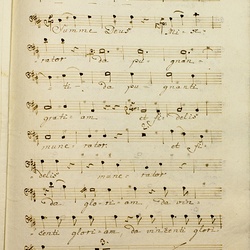 Summe Deus Mise-
rator da pug nan-
ti. Da pu gnanti
grati am. et fi delis
mune rator. et fi-
delis mune rator
da glo ri am da vin-
centi glori am. da vincenti glori